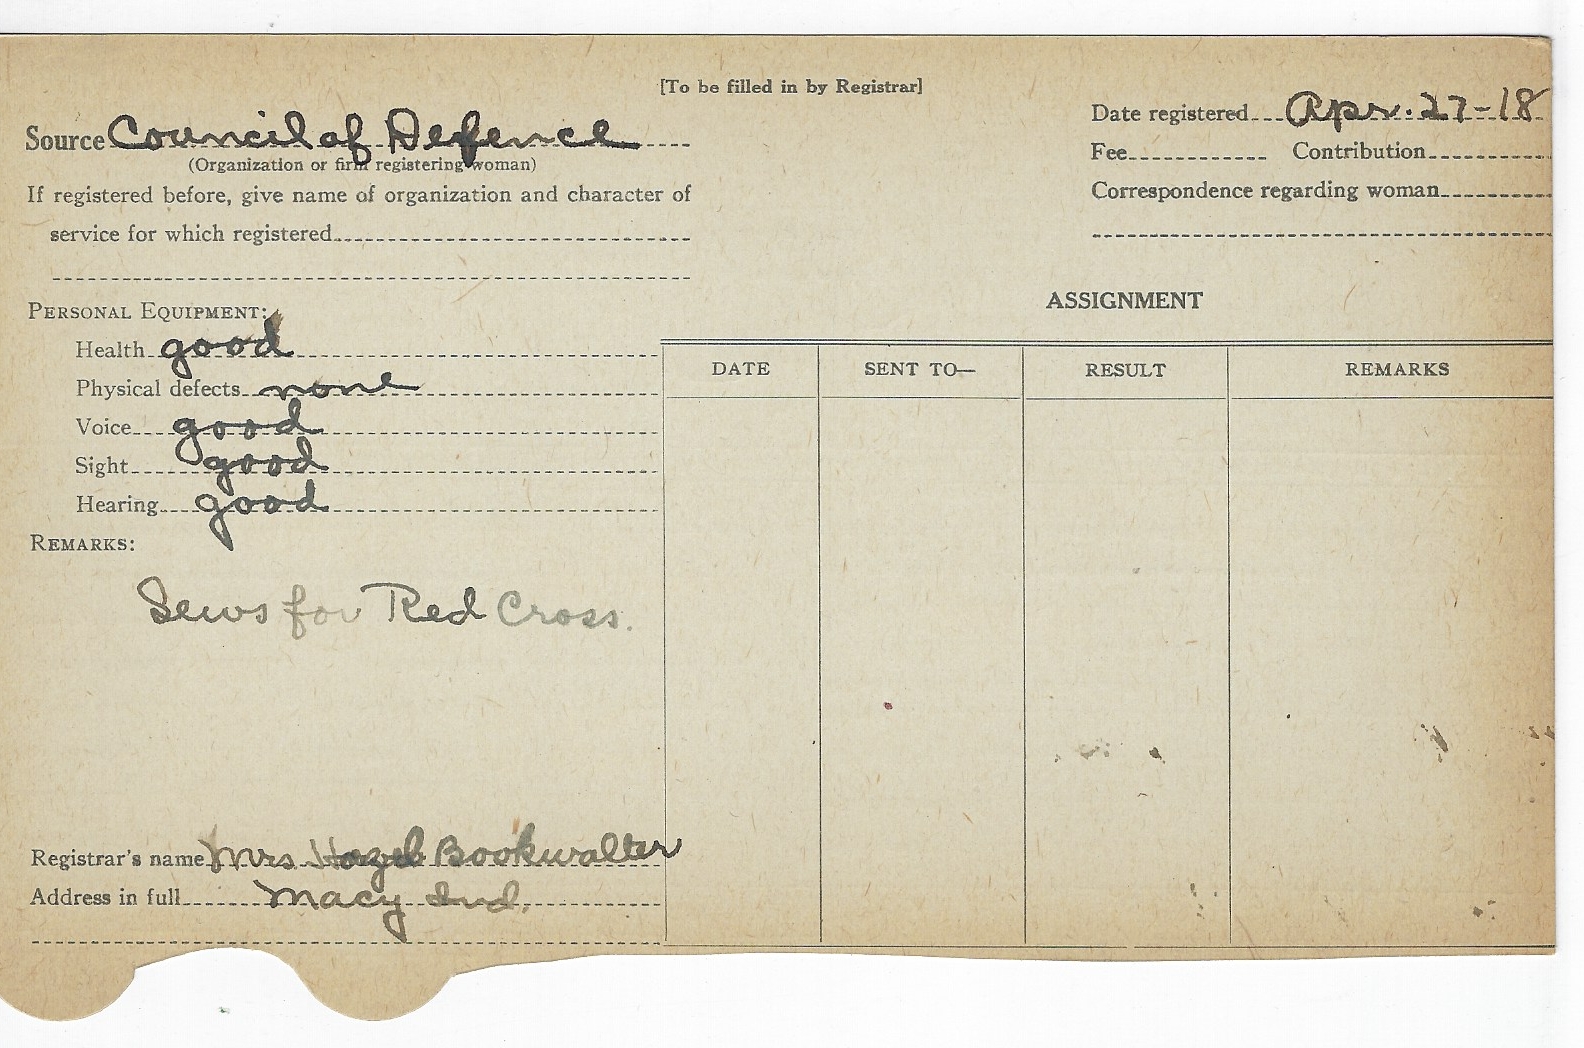 [To be filled in by Registrar]
Source Council of Defence
(Organization or firm registering woman)
If registered before, give name of organization and character of
service for which registered
Date registered Apr. 27-18
Fee Contribution
Correspondence regarding woman
PERSONAL EQUIPMENT:
Health good
Physical defects none
Voice good
Sight good
Hearing good
REMARKS:
Sews for Red Cross.
Registrar's name Mrs Hazel Bookwalter
Address in full Macy Ind.
ASSIGNMENT
DATE SENT TO— RESULT REMARKS